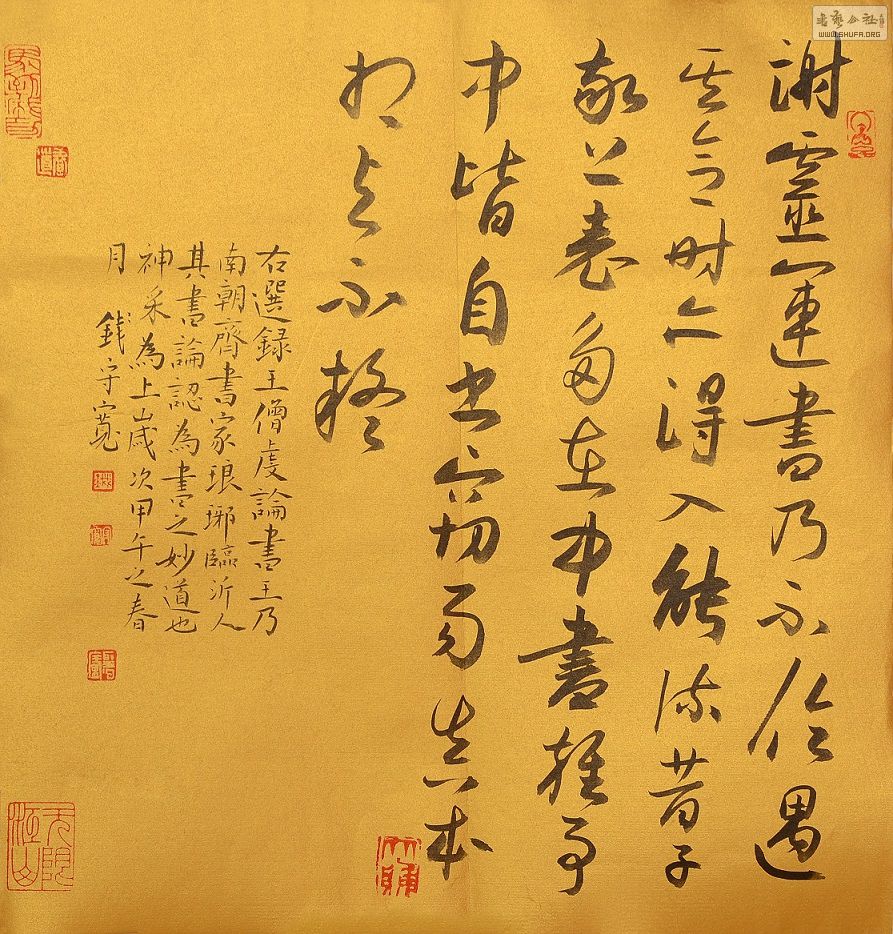 謝靈運書乃不倫遇
其合時亦得入能流昔子
敬上表多在中書雜事
中皆自書竊易真本
相與不疑
右選録王僧虔論書王乃
南朝齊書家琅琊臨沂人
其書論認為書之妙道也
神采為上歲次甲午之春
月 錢守寬
书艺公社
WWW.SHUFA.ORG